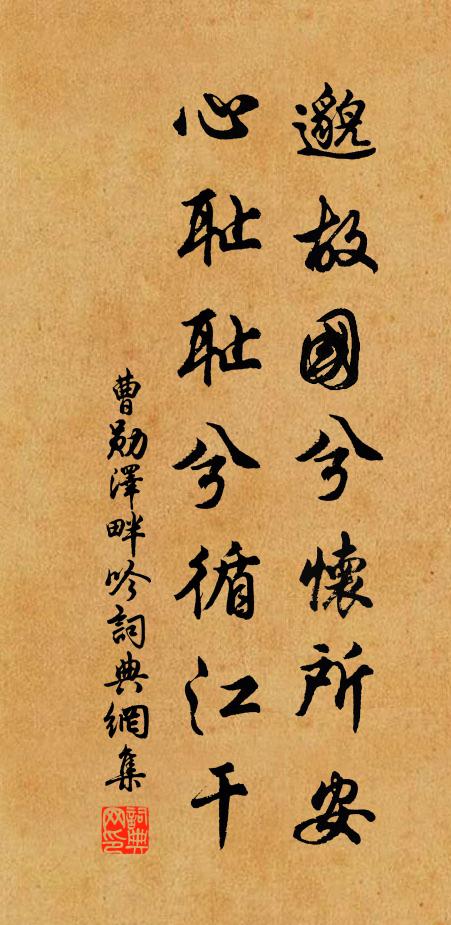 邈故國兮懷所安
心耻耻兮循江干
曹勛澤畔吟詞典網集
詞典网印